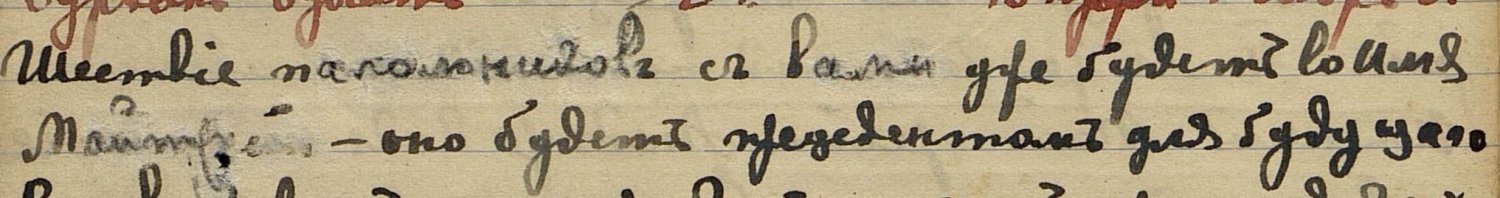 Шествіе паломниковъ съ Вами уже будетъ во Имя
Майтрейи – оно будетъ прецедентомъ для будущаго